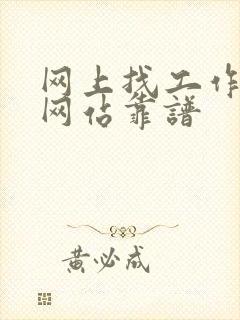 网上找工作
网占靠譜
黄必成